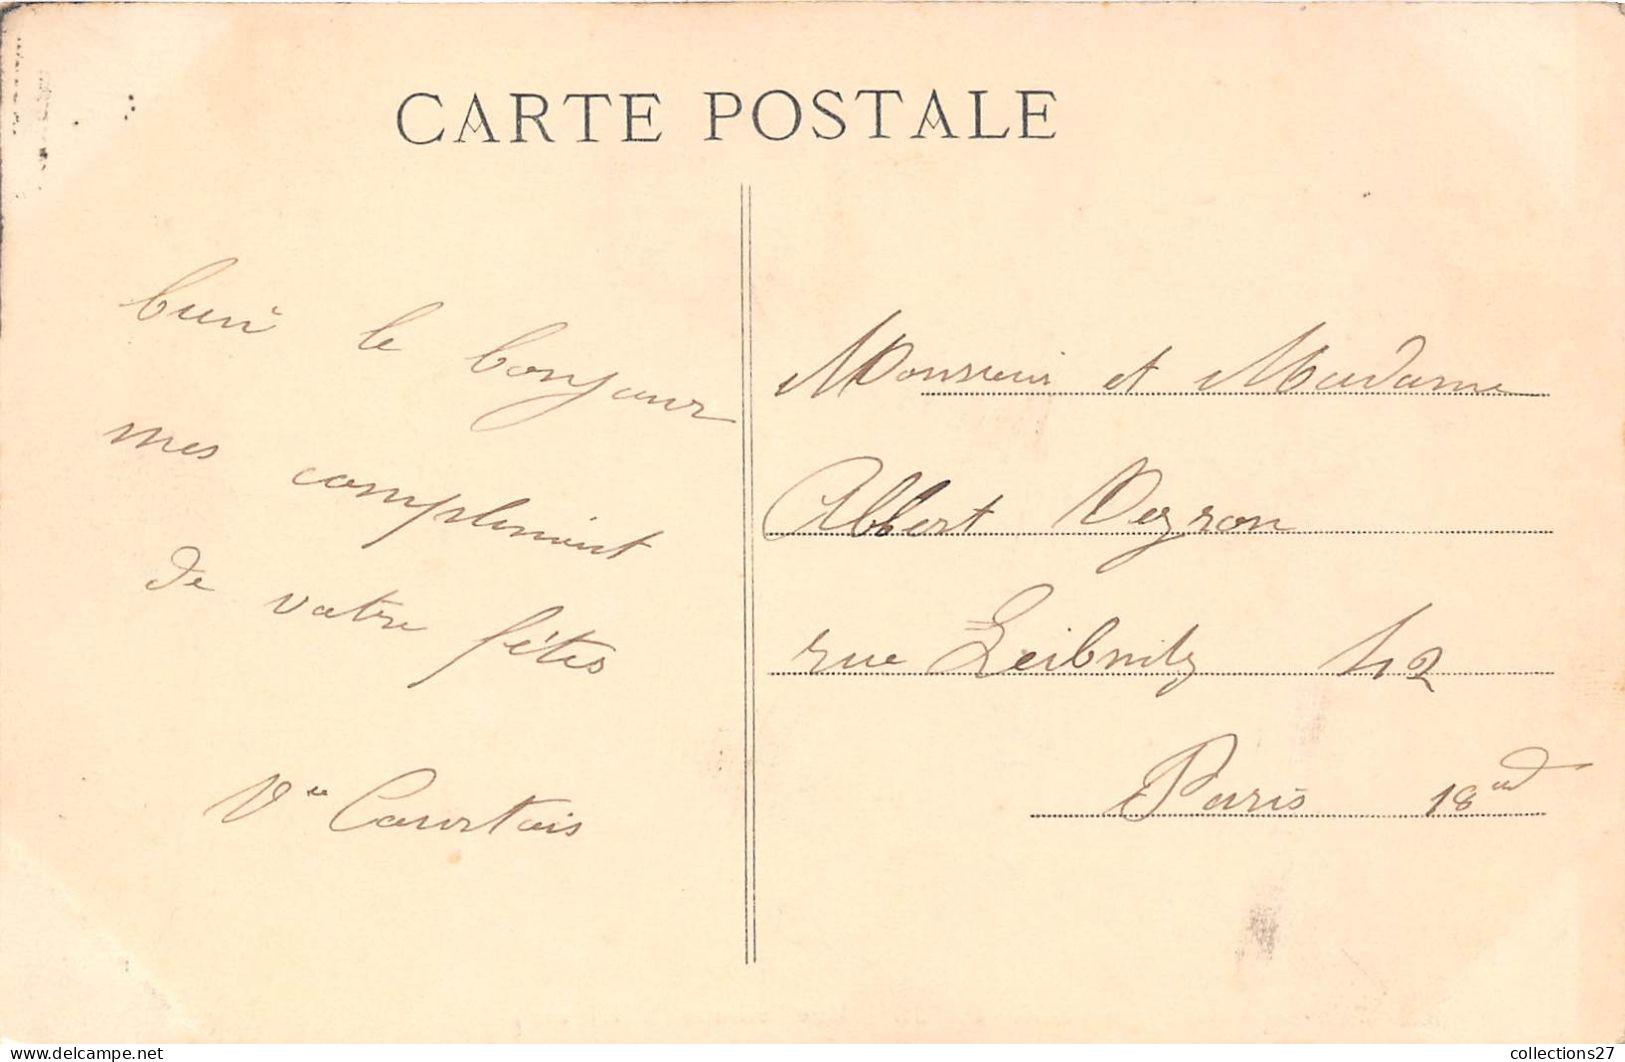 CARTE POSTALE
bien le bonjour
mes compliment
de votre fêtes
Vve Courtais
Monsieur et Madame
Albert Veyron
rue Leibnitz 42
Paris 18
collections27